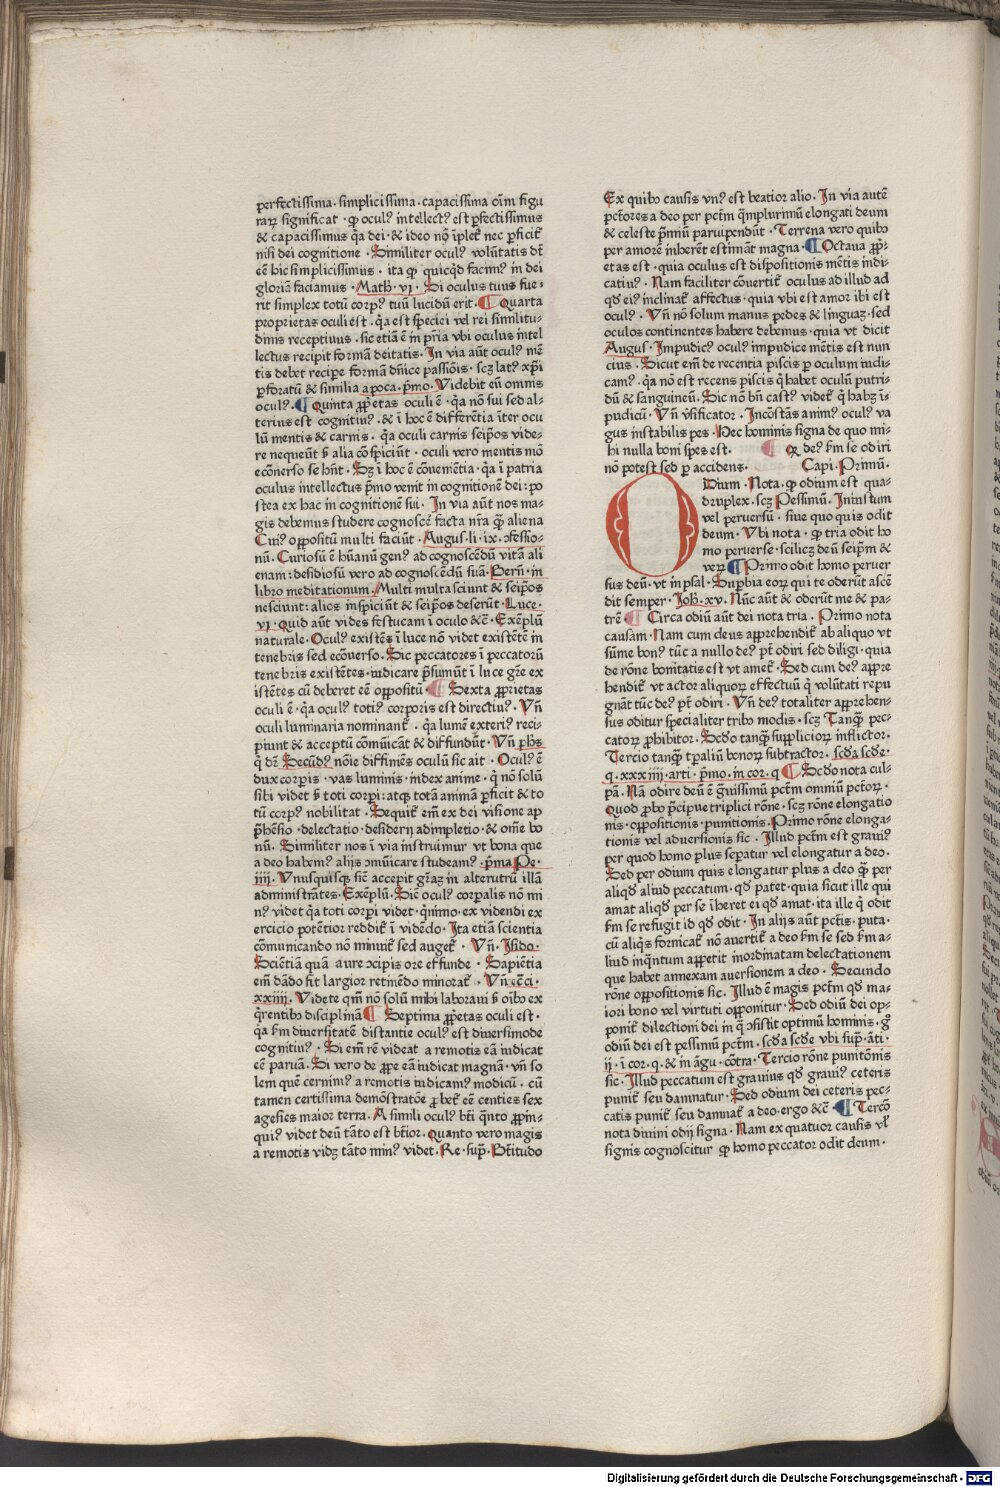 perfectissima. simplicissima. capacissima om̅ figu
rarꝝ significat · ꝙ oculꝰ intellectꝰ est ꝑfectissimus
& capacissimus q̇a dei · & ideo no̅ i̅plet᷑ nec ꝑficit᷑
nisi dei cognitione · Similiter oculꝰ volu̅tatis dt̅
ee̅ hic simplicissimus . ita ꝙ quicq̇d facimꝰ in dei
gloria̅ faciamus · Math̅ · vi · Si oculus tuus fue-
rit simplex totu̅ corpꝰ tuu̅ lucidu̅ erit · ¶ Quarta
proprietas oculi est . q̇a est sp̅eciei vel rei similitu-
dinis receptiuus . sic etia̅ e̅ in pr̅ia vbi oculus intel
lectus recipit forma̅ deitatis · In via au̅t oculꝰ me̅
tis debet recipe forma̅ dn̅ice passio̅is · scꝫ latꝰ xp̅i
ꝑforatu̅ & similia apoca . pm̅o · Videbit eu̅ omnis
oculꝰ · ¶ Quinta ꝓp̅etas oculi e̅ · q̇a no̅ sui sed al-
terius est cognitiuꝰ . & i̅ hoc e̅ differe̅tia i̅ter ocu
lu̅ mentis & carnis . q̇a oculi carnis seip̅os vide-
re nequeu̅t ẜ alia co̅spiciu̅t · oculi vero mentis mo̅
eco̅uerso se hn̅t · Sꝫ i̅ hoc e̅ co̅uenie̅tia · q̇a i̅ patria
oculus intellectus pm̅o venit in cognitione̅ dei : po
stea ex hac in cognitione̅ sui . In via au̅t nos ma-
gis debemus studere cognosce̅ facta nr̅a q̅ꝫ aliena
Cuiꝰ oppositu̅ multi faciu̅t · Augus · li · ix · ꝯfessio-
nu̅ . Curiosu̅ e̅ hu̅anu̅ genꝰ ad cognosce̅du̅ vita̅ ali
enam : desidiosu̅ vero ad cognosce̅du̅ sua̅ · Bern̅ · in
libro meditationum . Multi multa sciunt & seip̅os
nesciunt : alios inspiciu̅t & seip̅os deseru̅t · Luce ·
vi · Quid aut vides festucam i̅ oculo &c̅ · Exe̅plu̅
naturale · Oculꝰ existe̅s i̅ luce no̅ videt existe̅te̅ in
tenebris sed eco̅uerso . Sic peccatores i̅ peccatoru̅
tenebris existe̅tes · iudicare p̅sumu̅t i̅ luce gr̅e ex
iste̅tes cu̅ deberet ee̅ oppositu̅ · ¶ Sexta ꝓprietas
oculi e̅ · q̇a oculꝰ totiꝰ corporis est directiuꝰ · Vn̅
oculi luminaria nominant᷑ . q̇a lume̅ exteriꝰ reci-
piunt & acceptu̅ co̅mu̅ica̅t & diffundu̅t · Vn̅ ph̅s
q̇ dꝛ̅ Secu̅dꝰ no̅ie diffinie̅s oculu̅ sic ait · Oculꝰ e̅
dux corpis · vas luminis · index anime · q̇ no̅ solu̅
sibi videt ẜ toti corpi : atqꝫ tota̅ anima̅ ꝑficit & to
tu̅ corpꝰ nobilitat · Sequit᷑ em̅ ex dei visione ap
p̅he̅sio · delectatio · desiderij adimpletio · & om̅e bo
nu̅ . Similiter nos i̅ via instruimur vt bona que
a deo habemꝰ alijs ꝯmu̅icare studeamꝰ · pm̅a Pe ·
iiii · Vnusquisqꝫ sic̅ accepit gr̅aꝫ in alterutru̅ illa̅
administra̅tes · Exe̅plu̅ · Sic̅ oculꝰ corpalis no̅ mi
nꝰ videt q̇a toti corpi videt · q̇nimo · ex videndi ex
ercicio pote̅tior reddit᷑ i̅ vide̅do · Ita etia̅ scientia
co̅municando no̅ minuit᷑ sed auget᷑ · Vn̅ · Isido ·
Scie̅tia̅ qua̅ aure ꝯcipis ore effunde · Sapie̅tia
em̅ da̅do fit largior retine̅do minorat᷑ · Vn̅ ecc̅i ·
xxiiii · Videte qm̅ no̅ solu̅ mihi laboraui ẜ oi̅bꝰ ex
q̇rentibꝰ disciplina̅ ¶ Septima ꝓp̅etas oculi est ·
q̇a ẜm diuersitate̅ distantie oculꝰ est diuersimode
cognitiuꝰ · Si em̅ re̅ videat a remotis ea̅ iudicat
ee̅ parua̅ . Si vero de ꝓpe ea̅ iudicat magna̅ · vn̅ so
lem que̅ cernimꝰ a remotis iudicamꝰ modicu̅ . cu̅
tamen certissima demo̅strato̅e ꝓbet᷑ ee̅ centies sex
agesies maior terra . A simili oculꝰ bt̅i q̇nto ꝓpin-
quiꝰ videt deu̅ ta̅to est bt̅ior . Quanto vero magis
a remotis vidꝫ ta̅to minꝰ videt . Re · sup̅ · Bt̅itudo
Ex quibꝰ causis vnꝰ est beatior alio . In via aute̅
pctores a deo per pctm̅ q̅mplurimu̅ elongati deum
& celeste p̅miu̅ paruipendu̅t · Terrena vero quibꝰ
per amore̅ inhere̅t estima̅t magna · ¶ Octaua ꝓp̅-
etas est · quia oculus est dispositionis me̅tis indi-
catiuꝰ . Nam faciliter co̅uertit᷑ oculus ad illud ad
qd̅ eiꝰ inclinat᷑ affectus · quia vbi est amor ibi est
oculꝰ . Vn̅ no̅ solum manus pedes & li̅nguaꝫ · sed
oculos continentes habere debemus · quia vt dicit
Augus · Impudicꝰ oculꝰ impudice me̅tis est nun
cius . Sicut em̅ de recentia piscis ꝑ oculum iudi-
camꝰ . q̇a no̅ est recens piscis q̇ habet oculu̅ putri-
du̅ & sanguineu̅ . Sic no̅ bn̅ castꝰ videt᷑ q̇ habꝫ i̅-
pudicu̅ . Vn̅ v̅sificator · Inco̅sta̅s animꝰ oculꝰ va
gus instabilis pes · Hec hominis signa de quo mi-
hi nulla boni spes est . ¶ Qꝛ deꝰ ẜm se odiri
no̅ potest sed ꝑ accidens . Capi · Primu̅ .
ODium · Nota · ꝙ odium est qua-
druplex . scꝫ Pessimu̅ . Iniustum
vel peruersu̅ . siue quo quis odit
deum · Vbi nota · ꝙ tria odit ho
mo peruerse · scilicꝫ deu̅ seip̅m &
verꝝ ¶ Primo odit homo peruer
sus deu̅ . vt in psal · Sup̅bia eoꝝ qui te oderu̅t asce̅
dit semper . Joh̅ . xv . Nu̅c au̅t & oderu̅t me & pa-
tre̅ ¶ Circa odiu̅ au̅t dei nota tria . Primo nota
causam . Nam cum deus apprehendit᷑ ab aliquo vt
su̅me bonꝰ tu̅c a nullo deꝰ pt̅ odiri sed diligi · quia
de ro̅ne bonitatis est vt amet᷑ · Sed cum deꝰ appre
hendit᷑ vt actor aliquoꝝ effectuu̅ q̇ volu̅tati repu
gna̅t tu̅c deꝰ pt̅ odiri . Vn̅ deꝰ totaliter apprehen-
sus oditur specialiter tribꝰ modis · scꝫ Tanq̅ꝫ pec-
catoꝝ ꝓhibitor . Scd̅o tanq̅ꝫ supplicioꝝ inflictor .
Tercio tanq̅ꝫ tp̅aliu̅ bonoꝝ subtractor . scd̅a scd̅e ·
q . xxxiiii . arti · pm̅o . in cor . q ¶ Scd̅o nota cul-
pa̅ . Na̅ odire deu̅ e̅ g̅uissimu̅ pctm̅ omniu̅ pctoꝝ .
Quod ꝓbo p̅cipue triplici ro̅ne . scꝫ ro̅ne elongatio
nis · oppositionis · punitionis . Primo ro̅ne elonga-
tionis vel aduersionis sic . Illud pctm̅ est grauiꝰ
per quod homo plus sep̅atur vel elongatur a deo .
Sed per odium quis elongatur plus a deo q̅ꝫ per
aliqd̅ aliud peccatum . qd̅ patet · quia sicut ille qui
amat aliqd̅ per se i̅heret ei qd̅ amat . ita ille q̇ odit
ẜm se refugit id qd̅ odit . In alijs au̅t pctis · puta ·
cu̅ aliqs fornicat᷑ no̅ auertit᷑ a deo ẜm se sed ẜm a-
liud inq̅ntum appetit inordinatam delectationem
que habet annexam auersionem a deo · Secundo
ro̅ne oppositionis sic . Illud e̅ magis pctm̅ qd̅ ma-
iori bono vel virtuti opponitur · Sed odiu̅ dei op-
ponit᷑ dilectioni dei in q̇ ꝯsistit optimu̅ hominis . gͦ
odiu̅ dei est pessimu̅ pctm̅ . scd̅a scd̅e vbi sup̅ · a̅ti ·
ii · i̅ cor . q . & in a̅gu · co̅tra · Tercio ro̅ne punito̅nis
sic . Illud peccatum est grauius qd̅ grauiꝰ ceteris
punit᷑ seu damnatur · Sed odium dei ceteris pec-
catis punit᷑ seu damnat᷑ a deo · ergo &c̅ ¶ Tercio̅
nota diuini odij signa . Nam ex quatuor causis vl̅
signis cognoscitur ꝙ homo peccator odit deum .
Digitalisierung gefördert durch die Deutsche Forschungsgemeinschaft - DFG